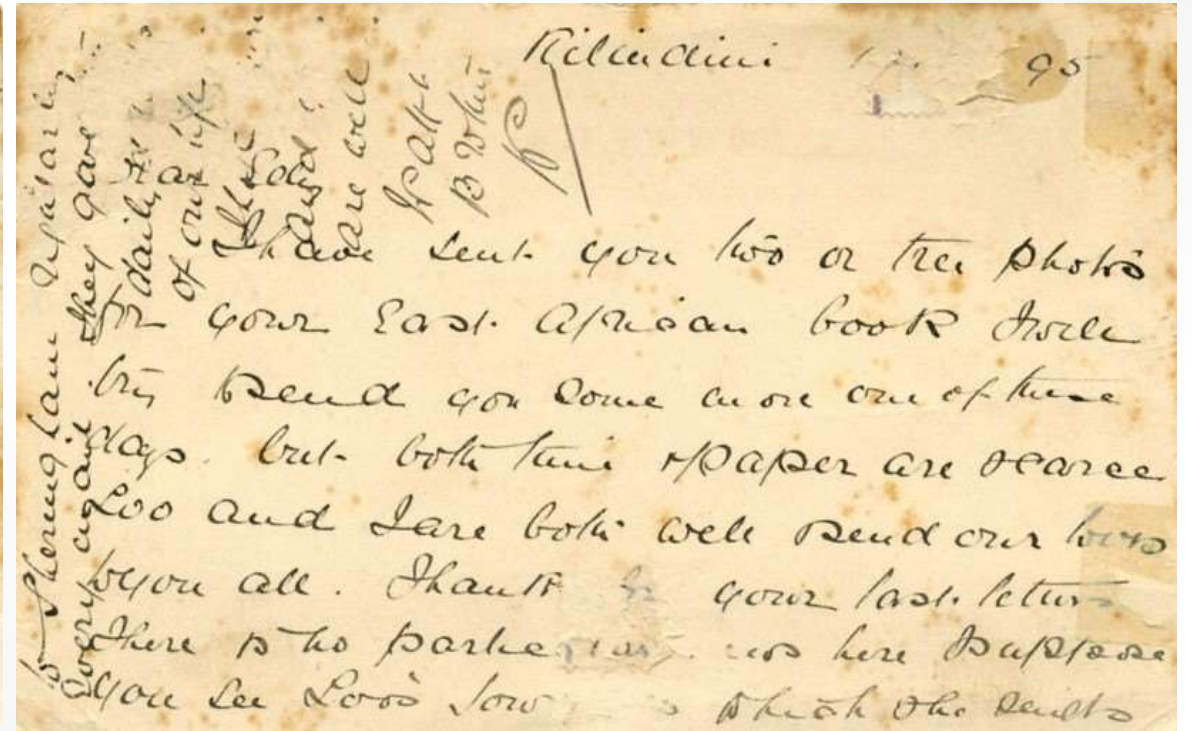 Kilindini 95
Dear Lolly
I have sent you two or tree photos
for your East African book I will
try & send you some more one of these
days. but both time & paper are scarce
Loo and I are both well & send our love
to you all. Thank your last letter
There is no here I suppose
you see Loo's which she sends
to Sheringham regularly
every mail they gave
daily
of our life
and
are well
Walt
B White